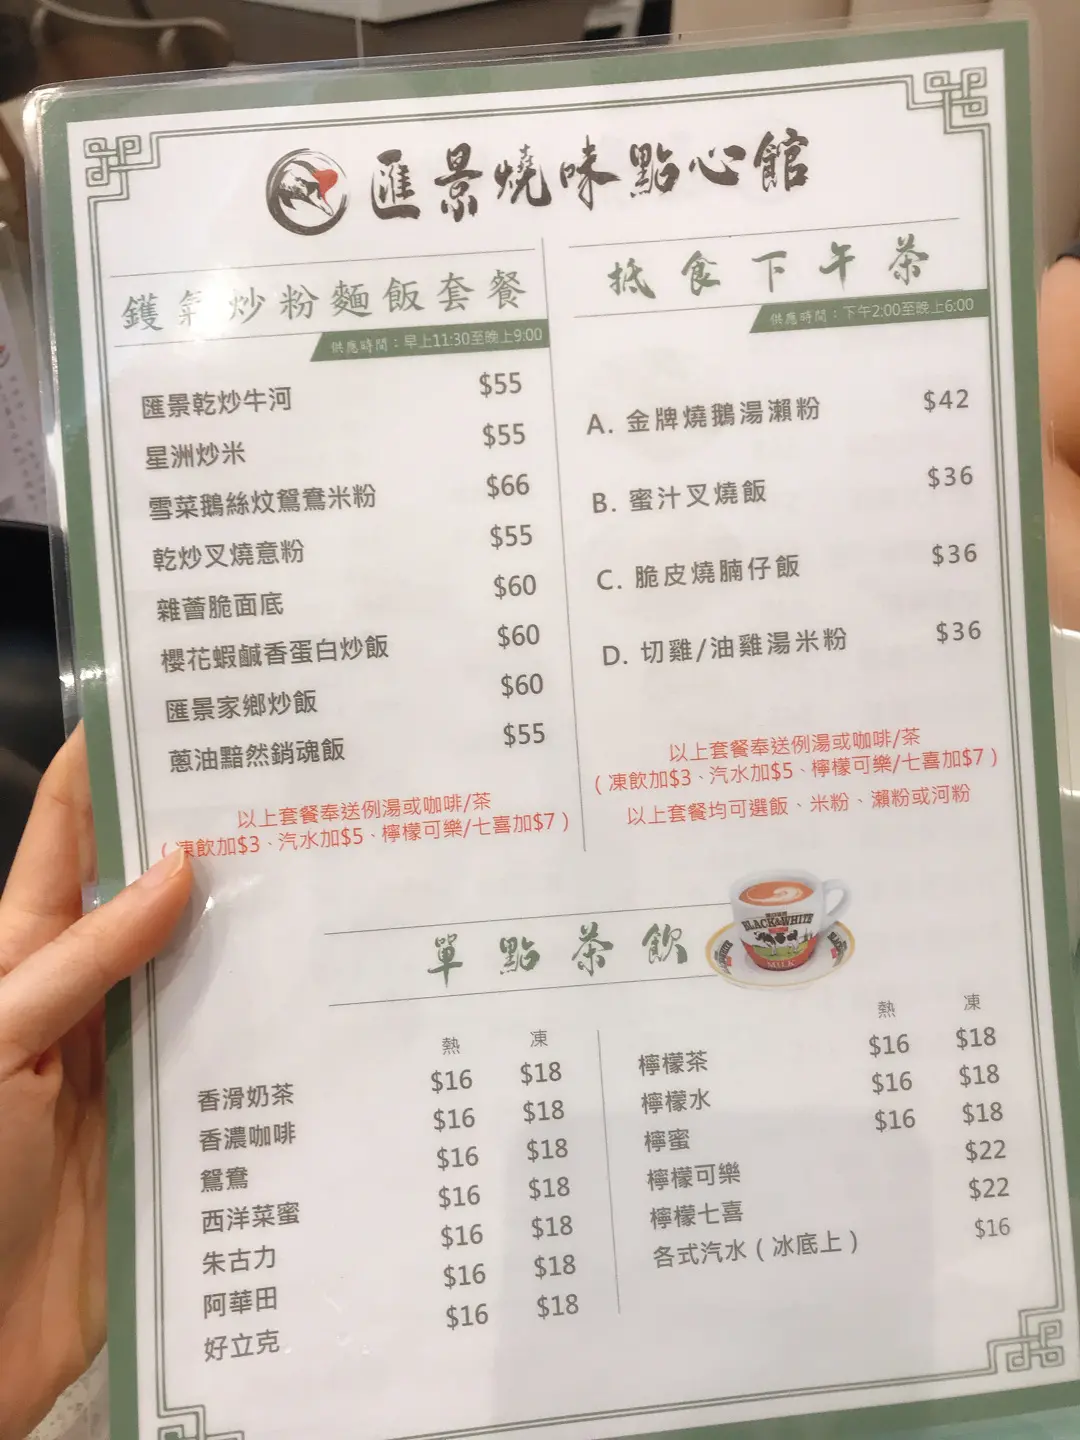 匯景燒味點心館
鑊氣炒粉麵飯套餐
供應時間：早上11:30至晚上9:00
匯景乾炒牛河 $55
星洲炒米 $55
雪菜鵝絲炆鴛鴦米粉 $66
乾炒叉燒意粉 $55
雜薈脆面底 $60
櫻花蝦鹹香蛋白炒飯 $60
匯景家鄉炒飯 $60
蔥油黯然銷魂飯 $55
以上套餐奉送例湯或咖啡/茶
（凍飲加$3、汽水加$5、檸檬可樂/七喜加$7）
抵食下午茶
供應時間：下午2:00至晚上6:00
A. 金牌燒鵝湯瀨粉 $42
B. 蜜汁叉燒飯 $36
C. 脆皮燒腩仔飯 $36
D. 切雞/油雞湯米粉 $36
以上套餐奉送例湯或咖啡/茶
（凍飲加$3、汽水加$5、檸檬可樂/七喜加$7）
以上套餐均可選飯、米粉、瀨粉或河粉
單點茶飲
BLACK&WHITE
MILK
熱 凍
香滑奶茶 $16 $18
香濃咖啡 $16 $18
鴛鴦 $16 $18
西洋菜蜜 $16 $18
朱古力 $16 $18
阿華田 $16 $18
好立克 $16 $18
熱 凍
檸檬茶 $16 $18
檸檬水 $16 $18
檸蜜 $16 $18
檸檬可樂 $22
檸檬七喜 $22
各式汽水（冰底上） $16